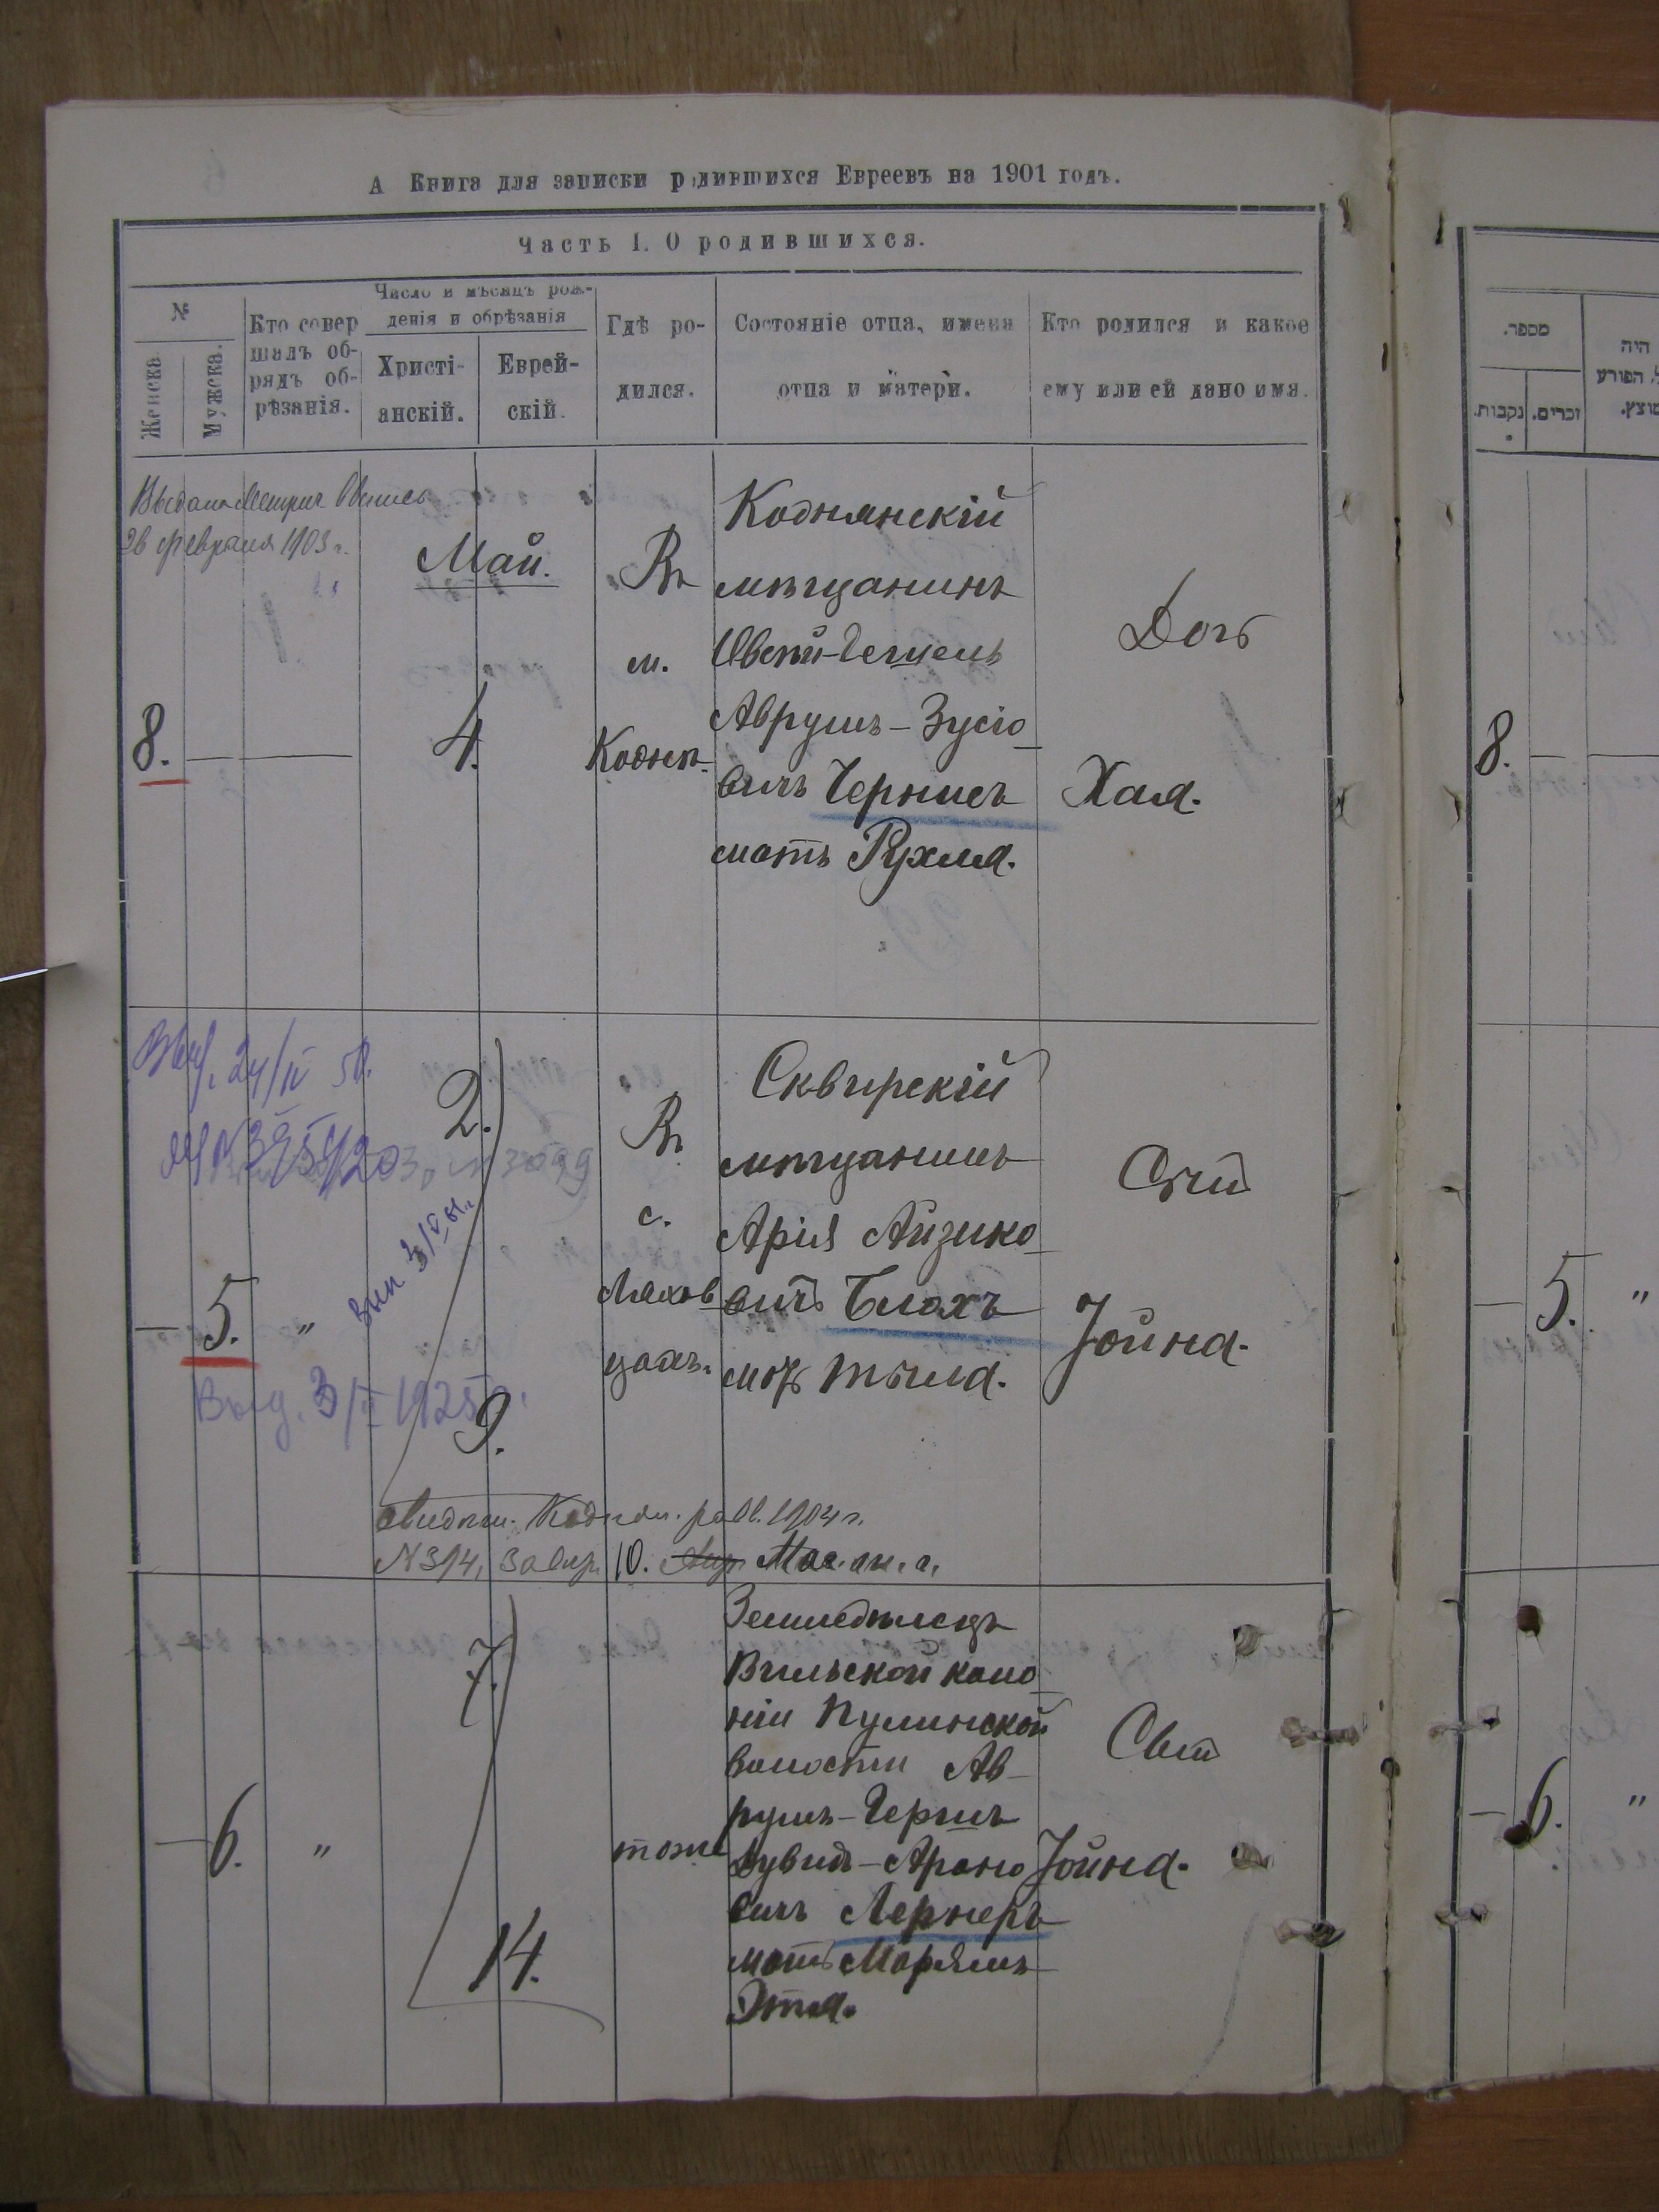 А Книга для записки родившихся Евреевъ на 1901 годъ.
Часть I. О родившихся.
№
Женска.
Мужска.
Кто совер
шалъ об-
рядъ об-
рѣзанія.
Число и мѣсяцъ рож-
денія и обрѣзанія
Христі-
анскій.
Еврей-
скій.
Гдѣ ро-
дился.
Состояніе отца, имена
отца и матери.
Кто родился и какое
ему или ей дано имя.
26 февраля 1903 г.
Май.
8.
4.
Въ
м.
Коднѣ
Коднянскій
мѣщанинъ
Аврумъ-Зусіо-
вичъ Чернисъ
мать Рухля.
Дочь
Хая.
Выд. 24/IV 50.
2.
5.
"
Выд. 3/II 1925
9.
Въ
с.
Ляхов
цахъ.
Сквирскій
мѣщанинъ
Арія Айзико-
вичъ Блохъ
мать
Сынъ
Іойна.
1904 г.
N 394, 10. Мая
7.
6.
"
14.
тоже
Земледѣлецъ
Вильской коло-
ніи Пулинской
волости Ав-
румъ-Гершъ
Дувидъ-Ароно
вичъ Лернеръ
мать Марьямъ
Этя.
Сынъ
Іойна.
מספר.
נקבות.
זכרים.
היה
הפורע
8.
5.
"
6.
"